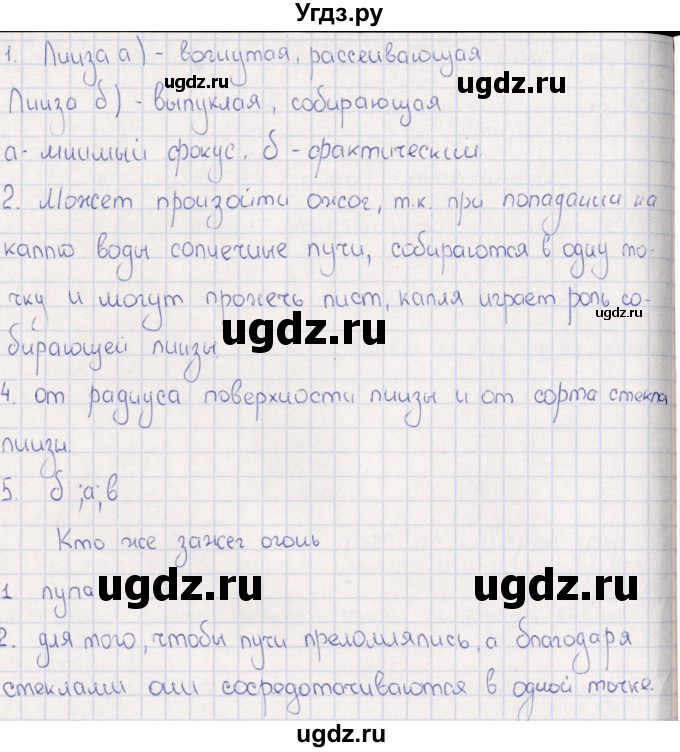 Угдз.ру
1. Линза а) - вогнутая, рассеивающая
ugdz.ru
ugdz.ru
Линза б) - выпуклая, собирающая
а - мнимый фокус. б - фактический.
2. Может произойти ожог, т.к. при попадании на
каплю воды солнечные лучи, собираются в одну то-
чку и могут прожечь лист, капля играет роль со-
ugdz.ru
ugdz.ru
бирающей линзы.
4. от радиуса поверхности линзы и от сорта стекла
линзы.
ugdz.ru
5. б ;а; в
Кто же зажег огонь
1 лупа
ugdz.ru
ugdz.ru
2. для того, чтобы лучи преломлялись, а благодаря
стеклами они сосредотачиваются в одной точке.
ugdz.ru